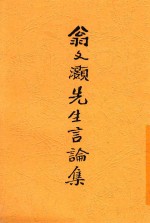 翁文灝先生言論集